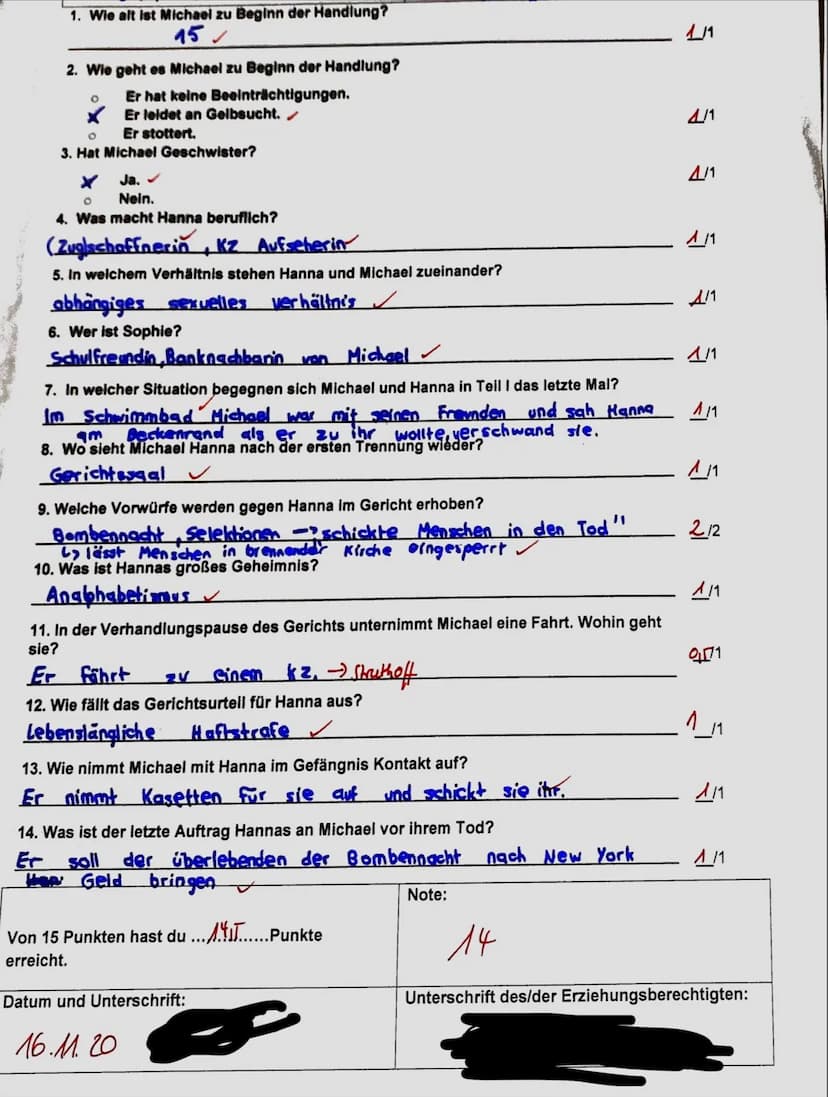 1. Wie alt ist Michael zu Beginn der Handlung?
15 1/1
2. Wie geht es Michael zu Beginn der Handlung?
Er hat keine Beeinträchtigungen.
Er leidet an Gelbsucht. 1/1
Er stottert.
3. Hat Michael Geschwister?
Ja. 1/1
Nein.
4. Was macht Hanna beruflich?
(Zug)schaffnerin, KZ Aufseherin 1/1
5. In welchem Verhältnis stehen Hanna und Michael zueinander?
abhängiges sexuelles verhältnis 1/1
6. Wer ist Sophie?
Schulfreundin, Banknachbarin von Michael 1/1
7. In welcher Situation begegnen sich Michael und Hanna in Teil I das letzte Mal?
Im Schwimmbad Michael war mit seinen Freunden und sah Hanna 1/1
am Beckenrand als er zu ihr wollte, verschwand sie.
8. Wo sieht Michael Hanna nach der ersten Trennung wieder?
Gerichtssaal 1/1
9. Welche Vorwürfe werden gegen Hanna im Gericht erhoben?
Bombennacht, Selektionen → schickte Menschen in den Tod" 2/2
↳ lässt Menschen in brennender Kirche eingesperrt
10. Was ist Hannas großes Geheimnis?
Analphabetismus 1/1
11. In der Verhandlungspause des Gerichts unternimmt Michael eine Fahrt. Wohin geht
sie?
Er fährt zu einem kz. → Struthoff 0,5/1
12. Wie fällt das Gerichtsurteil für Hanna aus?
Lebenslängliche Haftstrafe 1/1
13. Wie nimmt Michael mit Hanna im Gefängnis Kontakt auf?
Er nimmt Kasetten für sie auf und schickt sie ihr. 1/1
14. Was ist der letzte Auftrag Hannas an Michael vor ihrem Tod?
Er soll der überlebenden der Bombennacht nach New York 1/1
Geld bringen
Note:
Von 15 Punkten hast du ...14,5......Punkte
erreicht.
14
Datum und Unterschrift:
Unterschrift des/der Erziehungsberechtigten:
16.11.20